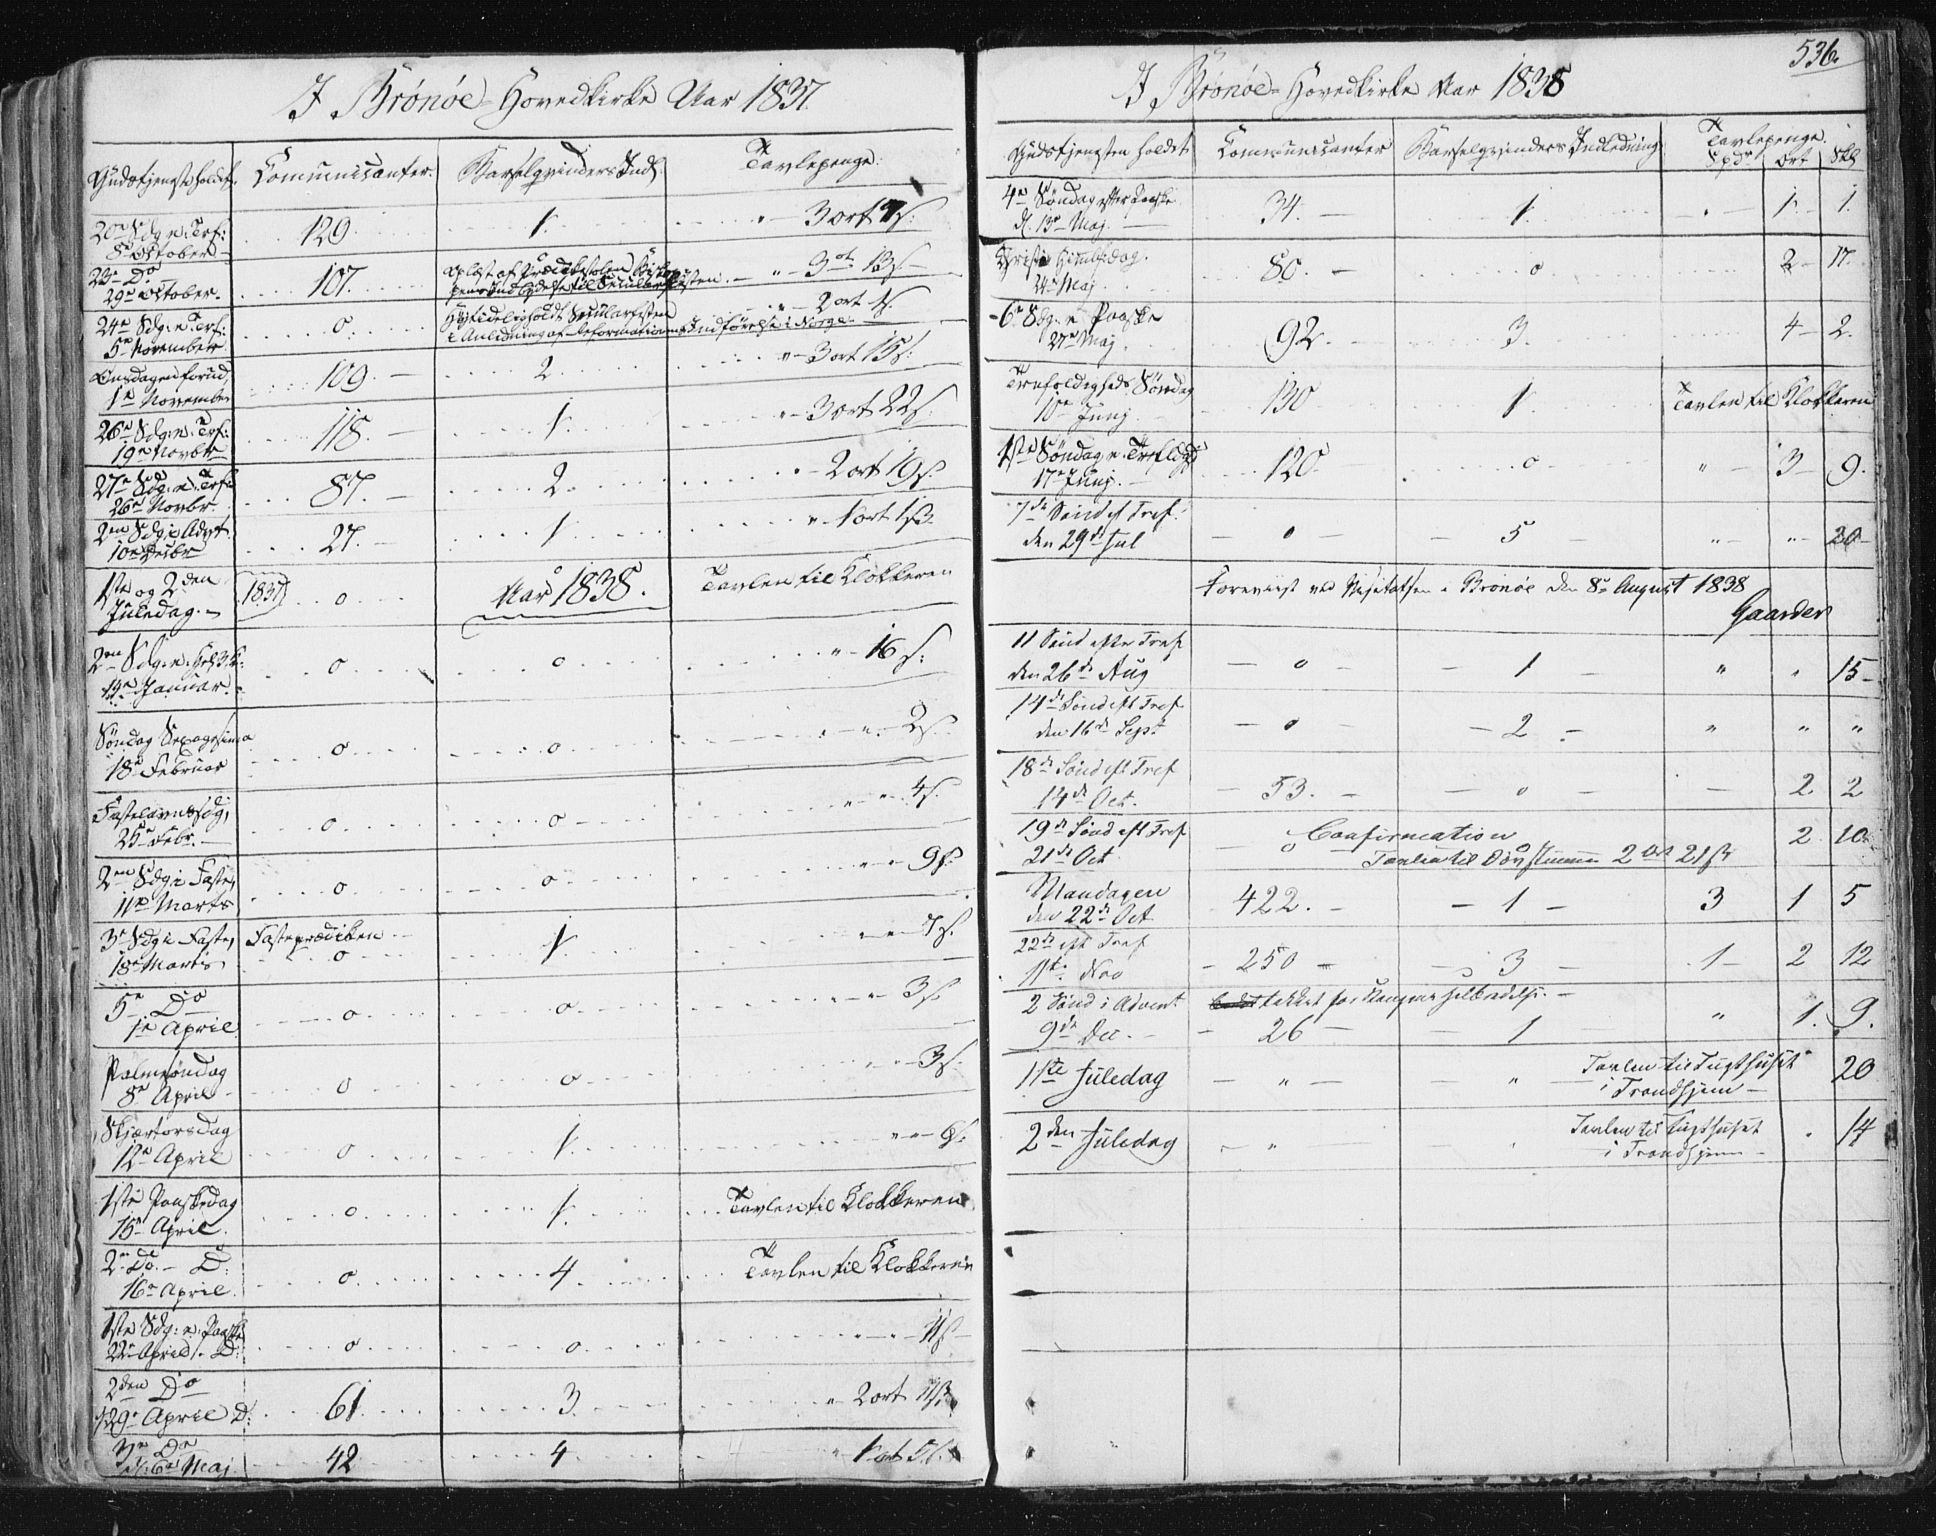 I Brönöe Hovedkirke Aar 1837.
Gudstjenst holdet. Communicanter. Barselqvinders Indl. Tavlepenge.
20de Sdg. e. Trf: 8de October 129 1. " 3 ort
23de Do 29de October. 107. Oplæst af Prædikestolen " 3 ort 13 s
24de Sdg. e. Trf: 5te November 0. Høitideligholdt Secularfesten " 2 ort
i Anledning af Reformationens Indførelse i Norge.
Onsdagen forud, 1te November 109. 2 " 3 ort 15 s.
26de Sdg. e. Trf: 19de Novbr 118. 1. " 3 ort 22 s.
27de Sdg. e. Trf: 26de Novbr 87. 2. 2 ort 19 s.
2den Sdg. i Advt. 10de Decbr 27. 1. " 1 ort
1ste og 2den Juledag. 1837 0 Tavlen til Klokkeren
Aar 1838.
2den Sdg. e. Januar. 0 0 " 16 s.
Søndag Sexagesima 18de Februar 0 0 " " 2 s.
Fastelavnssdg, 25de Febr. 0. 0 " " 4 s.
2den Sdg i Faste, 11te Marts 0 0 " " 9 s.
3de Sdg i Faste, 18de Marts, Fasteprædiken 0 1. " " 7 s.
5te Do 1te April 0 0 " " 3 s.
Palmesøndag 8de April 0 0 " " 3 s.
Skjærtorsdag 12te April 0 1. " "
1ste Paaskedag 15de April. 0 1. Tavlen til Klokkeren
2den do. 16de April. 0 4. Tavlen til Klokkeren
1ste Sdg: e. Paaske 22de April. 0 0. " " 11 s
2den Do 29de April 61. 3. " 2 ort
3de Do 6te Maj 42 4 " 1 ort 5 s.
536.
I Brönöe Hovedkirke Aar 1838
Gudstjensten holdet Communicanter Barselqvinders Indledning Tavlepenge. Spdr Ort Skl
4de Søndag efter Paaske d. 13de Maj. 34. 1. " 1. 1.
Christi Himlfdag. 24de Maj 80. 0 2 17.
6te Sdg. e. Paaske 27de Maj 92. 3. 4 2.
Trefoldigheds Søndag 10de Junj 130 1. Tavlen til Klokkeren
1ste Søndag e. Trefldg. 17de Junj. 120 0 " 3 9.
7de Sønd eft Tref. den 29de Jul 0 5 " " 20
Foreviist ved Visitatsen i Brönöe den 8de August 1838
Gaarder
11 Sønd efter Tref den 26de Aug 0 1 " " 15
14de Sønd eft Tref den 16de Sept 0 2 " " "
18de Sønd eft Tref 14de Oct. 53. 0 2 2
19de Sønd eft Tref 21de Oct 0 Confirmation 2 10
Tavlen til Døvstumme 2 Ort 21 s
Mandagen den 22de Oct 422. 1 3 1 5
22de eft Tref 11te Nov 250 3 1 2 12
2 Sønd i Advent takket for Kongens helbredelse.
9de Dec. 26 1 " 1. 9.
1ste Juledag " " Tavlen til Tugthuset i Trondhjem 20
2den Juledag " " Tavlen til Tugthuset i Trondhjem 14